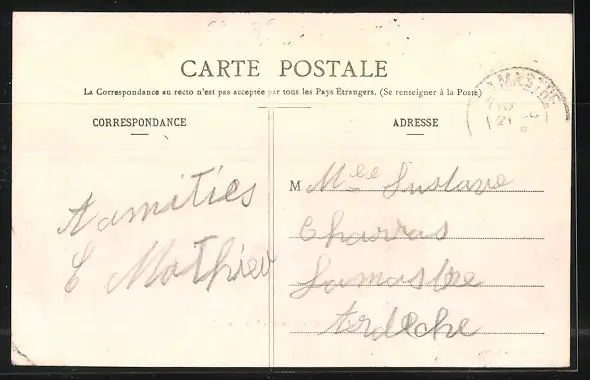 CARTE POSTALE
La Correspondance au recto n'est pas acceptée par tous les Pays Etrangers. (Se renseigner à la Poste)
CORRESPONDANCE
ADRESSE
Aamitiés
E Mathieu
M Mlle Gustave
Charras
Lamastre
Ardèche
LAMASTRE
21